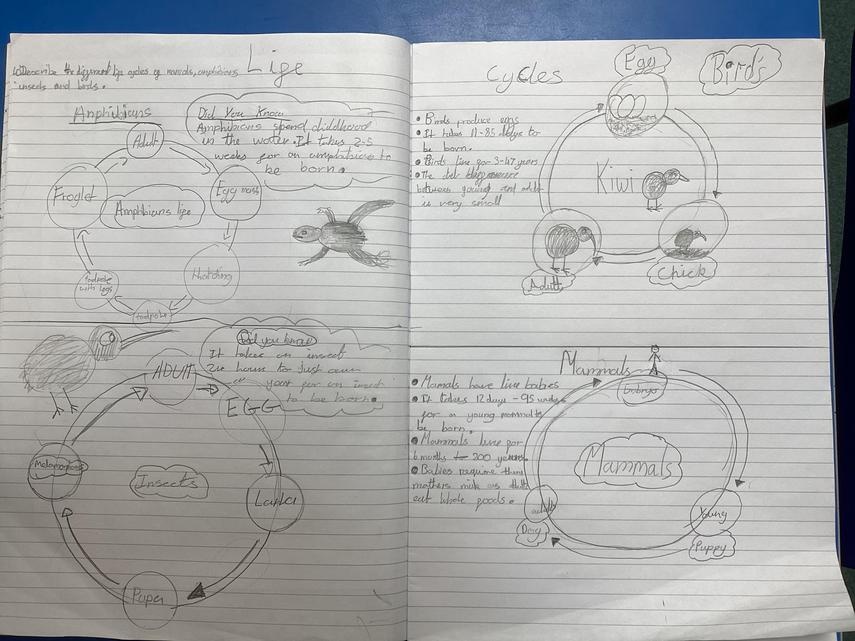 Life
LO Describe the different life cycles of mammals, amphibians
insects and birds.
Amphibians
Adult
Egg mass
Hatching
tadpole
tadpole
with legs
Froglet
Amphibians life
Did You Know
Amphibians spend childhood
in the water. It takes 2-5
weeks for an amphibians to
be born.
Did you know
It takes an insect
hours to Just over
year for an insect
to be born.
ADUlT
EGG
Larva
Pupa
Insects
Cycles
Birds
Egg
Chick
Adult
Kiwi
• Birds produce
• It takes 11-85 days to
be born.
• Birds live for 3-47 years
• The
between young and
is very small
Mammals
• Mamals have live babies
• It takes 12 days - 95 weeks
for a young mammals
be born.
• Mammals live for
6 months to 200 years.
• Babies require
mothers milk as
eat whole foods.
Mammals
Young
Puppy
adult